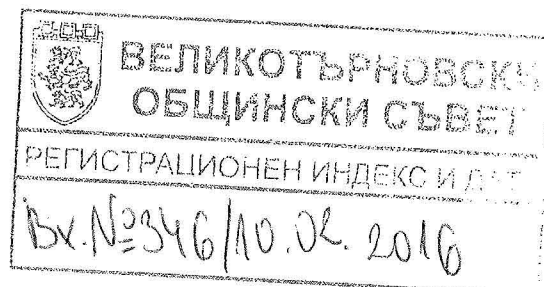 ВЕЛИКОТЪРНОВСКИ
ОБЩИНСКИ СЪВЕТ
РЕГИСТРАЦИОНЕН ИНДЕКС И ДАТА
Вх.№346/10.02.2016